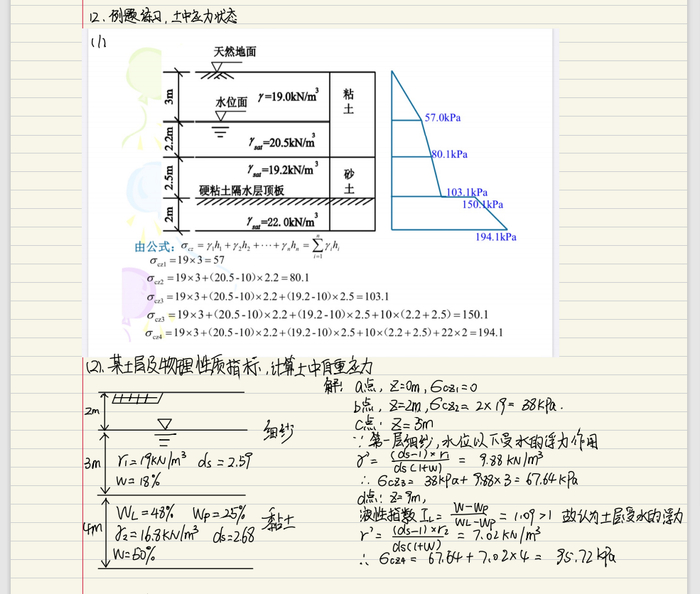 12. 例题练习, 土中应力状态
(1)
天然地面
3m
水位面
γ=19.0kN/m³
粘土
57.0kPa
2.2m
γsat=20.5kN/m³
80.1kPa
2.5m
γsat=19.2kN/m³
砂土
硬粘土隔水层顶板
103.1kPa
150.1kPa
2m
γsat=22.0kN/m³
194.1kPa
由公式: σcz = γ1h1 + γ2h2 + ⋯ + γnhn = Σ(i=1→n) γihi
σcz1 = 19×3 = 57
σcz2 = 19×3+(20.5-10)×2.2 = 80.1
σcz3 = 19×3+(20.5-10)×2.2+(19.2-10)×2.5 = 103.1
σcz3 = 19×3+(20.5-10)×2.2+(19.2-10)×2.5+10×(2.2+2.5) = 150.1
σcz4 = 19×3+(20.5-10)×2.2+(19.2-10)×2.5+10×(2.2+2.5)+22×2 = 194.1
(2). 某土层及物理性质指标, 计算土中自重应力
2m
细纱
3m
r1=19KN/m³ ds=2.59
W=18%
4m
WL=48% WP=25%
γ2=16.8KN/m³ ds=2.68
W=50%
黏土
解: a点, Z=0m, σcz1=0
b点, Z=2m, σcz2= 2×19= 38kPa.
c点: Z=5m
∵第一层细纱, 水位以下受水的浮力作用
r'= (ds-1)×r1 / ds(1+w) = 9.88 KN/m³
∴ σcz3= 38kPa+9.88×3=67.64kPa
d点: Z=9m,
液性指数 IL= W-WP / WL-WP = 1.09>1 故认为土层受水的浮力
r'= (ds-1)×r2 / ds(1+w) = 7.02KN/m³
∴ σcz4= 67.64+7.02×4= 95.72kPa